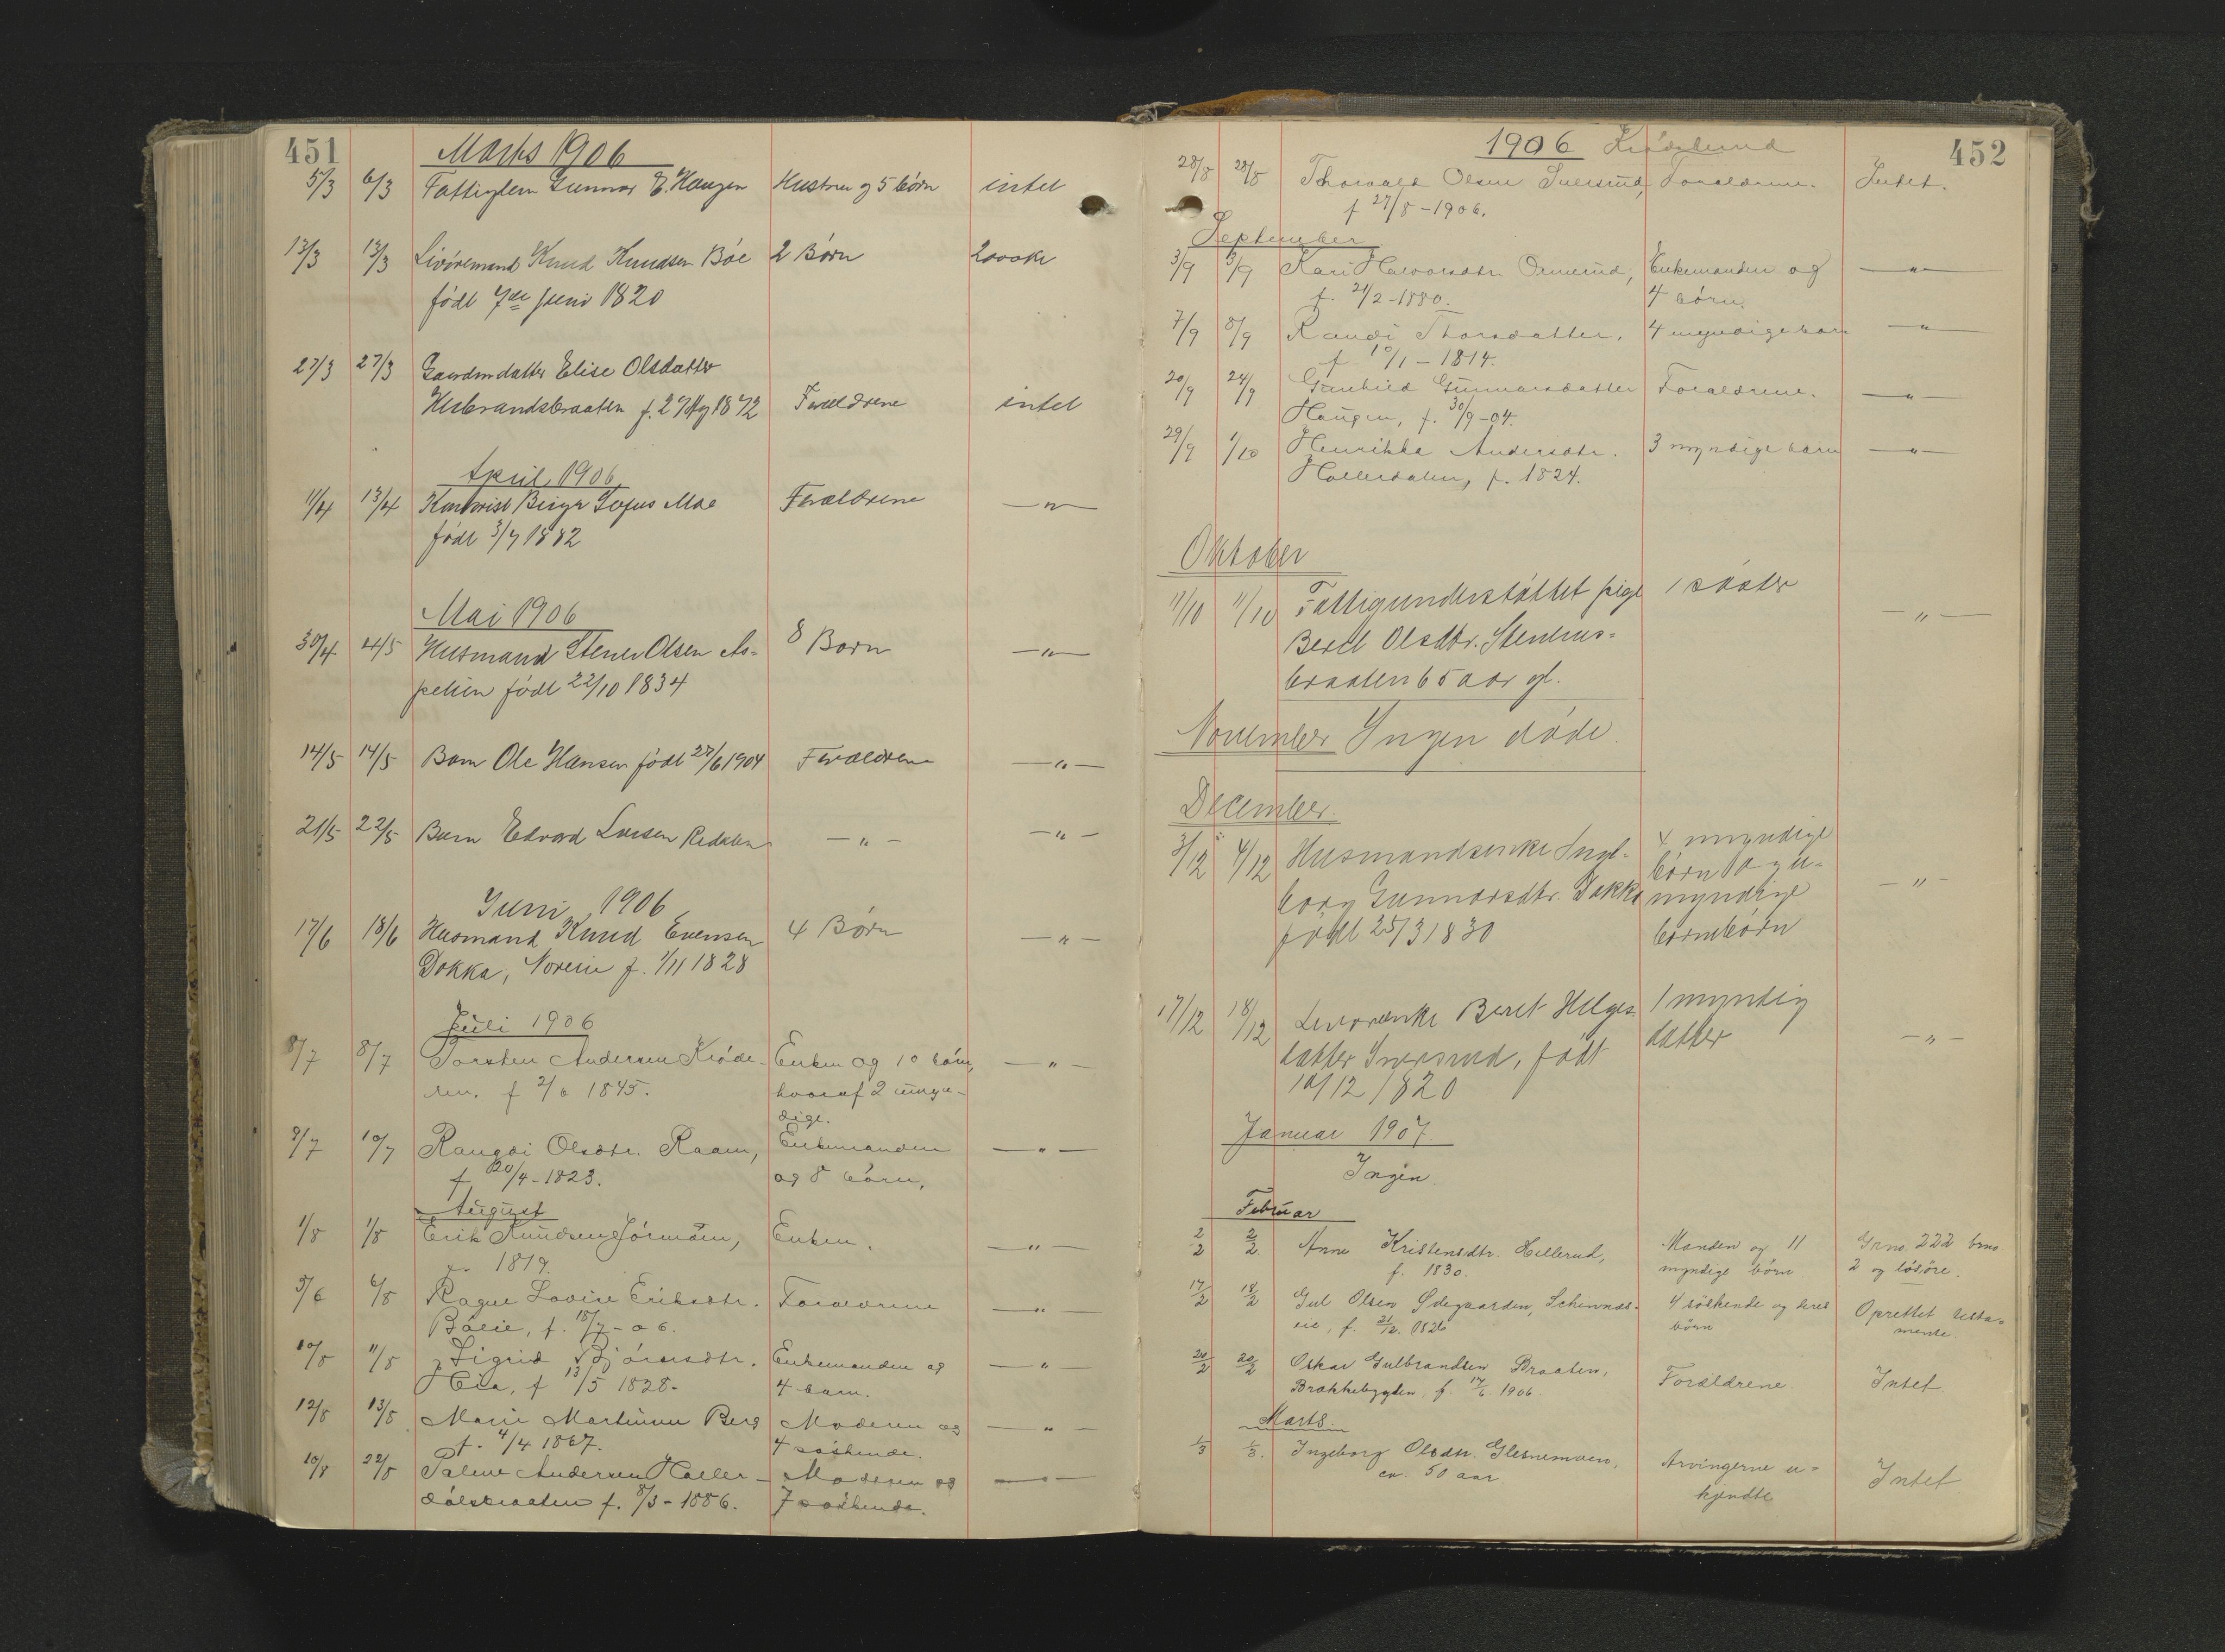 451
Marts 1906
5/3 6/3 Fattiglem Gunnar E. Haugen Hustru og 5 börn intet
13/3 13/3 Livöremand Knud Knudsen Böe 2 Börn 2000 kr
födt 7de Juni 1820
27/3 27/3 Gaardmdatter Elise Olsdatter
f. 27 1872 Forældrene intet
April 1906
11/4 13/4 Kontorist Birger Sofus Moe Forældrene —"—
födt 3/7 1882
Mai 1906
30/4 4/5 Husmand Stener Olsen As- 8 Born —"—
pelien födt 22/10 1834
14/5 14/5 Barn Ole Hansen födt 27/6 1904 Forældrene —"—
21/5 22/5 Barn Edvard Larsen —"— —"—
Juni 1906
17/6 18/6 Husmand Knud Evensen 4 Börn —"—
Dokka, f. 1/11 1828
Juli 1906
8/7 8/7 Torsten Andersen Kröde- Enken og 10 börn, —"—
ren. f 2/6 1845. hvoraf 2 umyn-
dige.
9/7 10/7 Rangdi Olsdtr. Raaen, Enkemanden —"—
f 20/4-1823. og 8 börn,
August
1/8 1/8 Erik Knudsen Enken. —"—
1819.
5/6 6/8 Ragne Lovise Eriksdtr. Forældrene —"—
f. 18/7-06.
10/8 11/8 Sigrid Björnsdtr. Enkemanden og —"—
f 13/5 1828. 4 barn.
12/8 13/8 Marie Martinsen Berg Moderen og —"—
f. 4/4 1867. 4 söskende.
10/8 22/8 Palme Andersen Haller- Moderen og —"—
dalsbraaten f. 8/3-1886. 7 söskende.
1906 Krödsherred
452
28/8 28/8 Thorvald Olsen Forældrene. Intet.
f 27/8-1906.
September
3/9 3/9 Kari Halvorsdtr. Ormerud, Enkemanden og —"—
f. 21/2-1880. 4 börn.
7/9 8/9 Randi Thorsdatter. 4 myndige barn —"—
f 10/1-1814.
20/9 24/9 Gunhild Gunnarsdatter Forældrene. —"—
Haugen, f. 30/9-04.
29/9 1/10 Henrikka Andersdtr. 3 myndige barn —"—
Hallerdalen, f. 1824.
Oktober
11/10 11/10 Fattigunderstöttet pige 1 söster —"—
Beret Olsdtr. Stenhus-
braaten 65 aar gl.
November Ingen döde.
December.
3/12 4/12 Husmandsenke Inge- 4 myndige
borg Gunnarsdtr. Dokka börn og u- —"—
födt 25/3 1830 myndige
börnebörn
17/12 18/12 Levörenke Beret Helges- 1 myndig
datter Iversrud, födt datter —"—
10/12 1820
Januar 1907.
Ingen.
Februar
2/2 2/2. Anne Kristensdtr. Hillerud, Manden og 11 Grno. 222 brno
f. 1830. myndige börn 2 og lösöre.
17/2 18/2 Gul Olsen Ödegaarden, 4 söskende og deres Oprettet testa-
eie, f. 21/12. 1826 börn mente
20/2 20/2 Oskar Gulbrandsen Braaten,
Brækkebygden, f. 17/6 1906. Forældrene Intet
Marts.
1/3 1/3. Ingeborg Olsdtr. Glesnemoen, Arvingerne u- Intet
ca. 50 aar kjendte